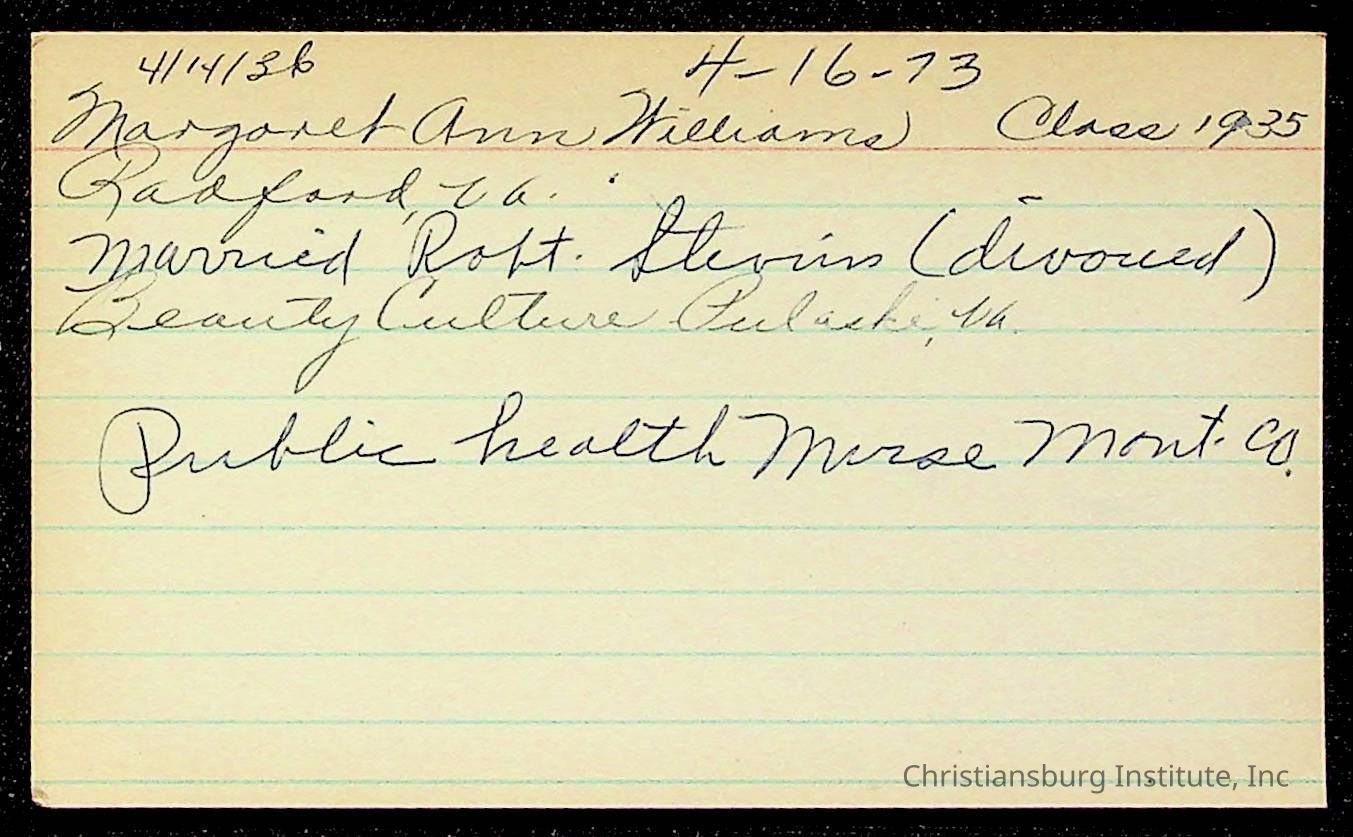 4/14/36 4-16-73
Margaret Ann Williams Class 1935
Radford, Va.
Married Robt. Stevens (divorced)
Beauty Culture Pulaski, Va.
Public health Nurse Mont. Co.
Christiansburg Institute, Inc